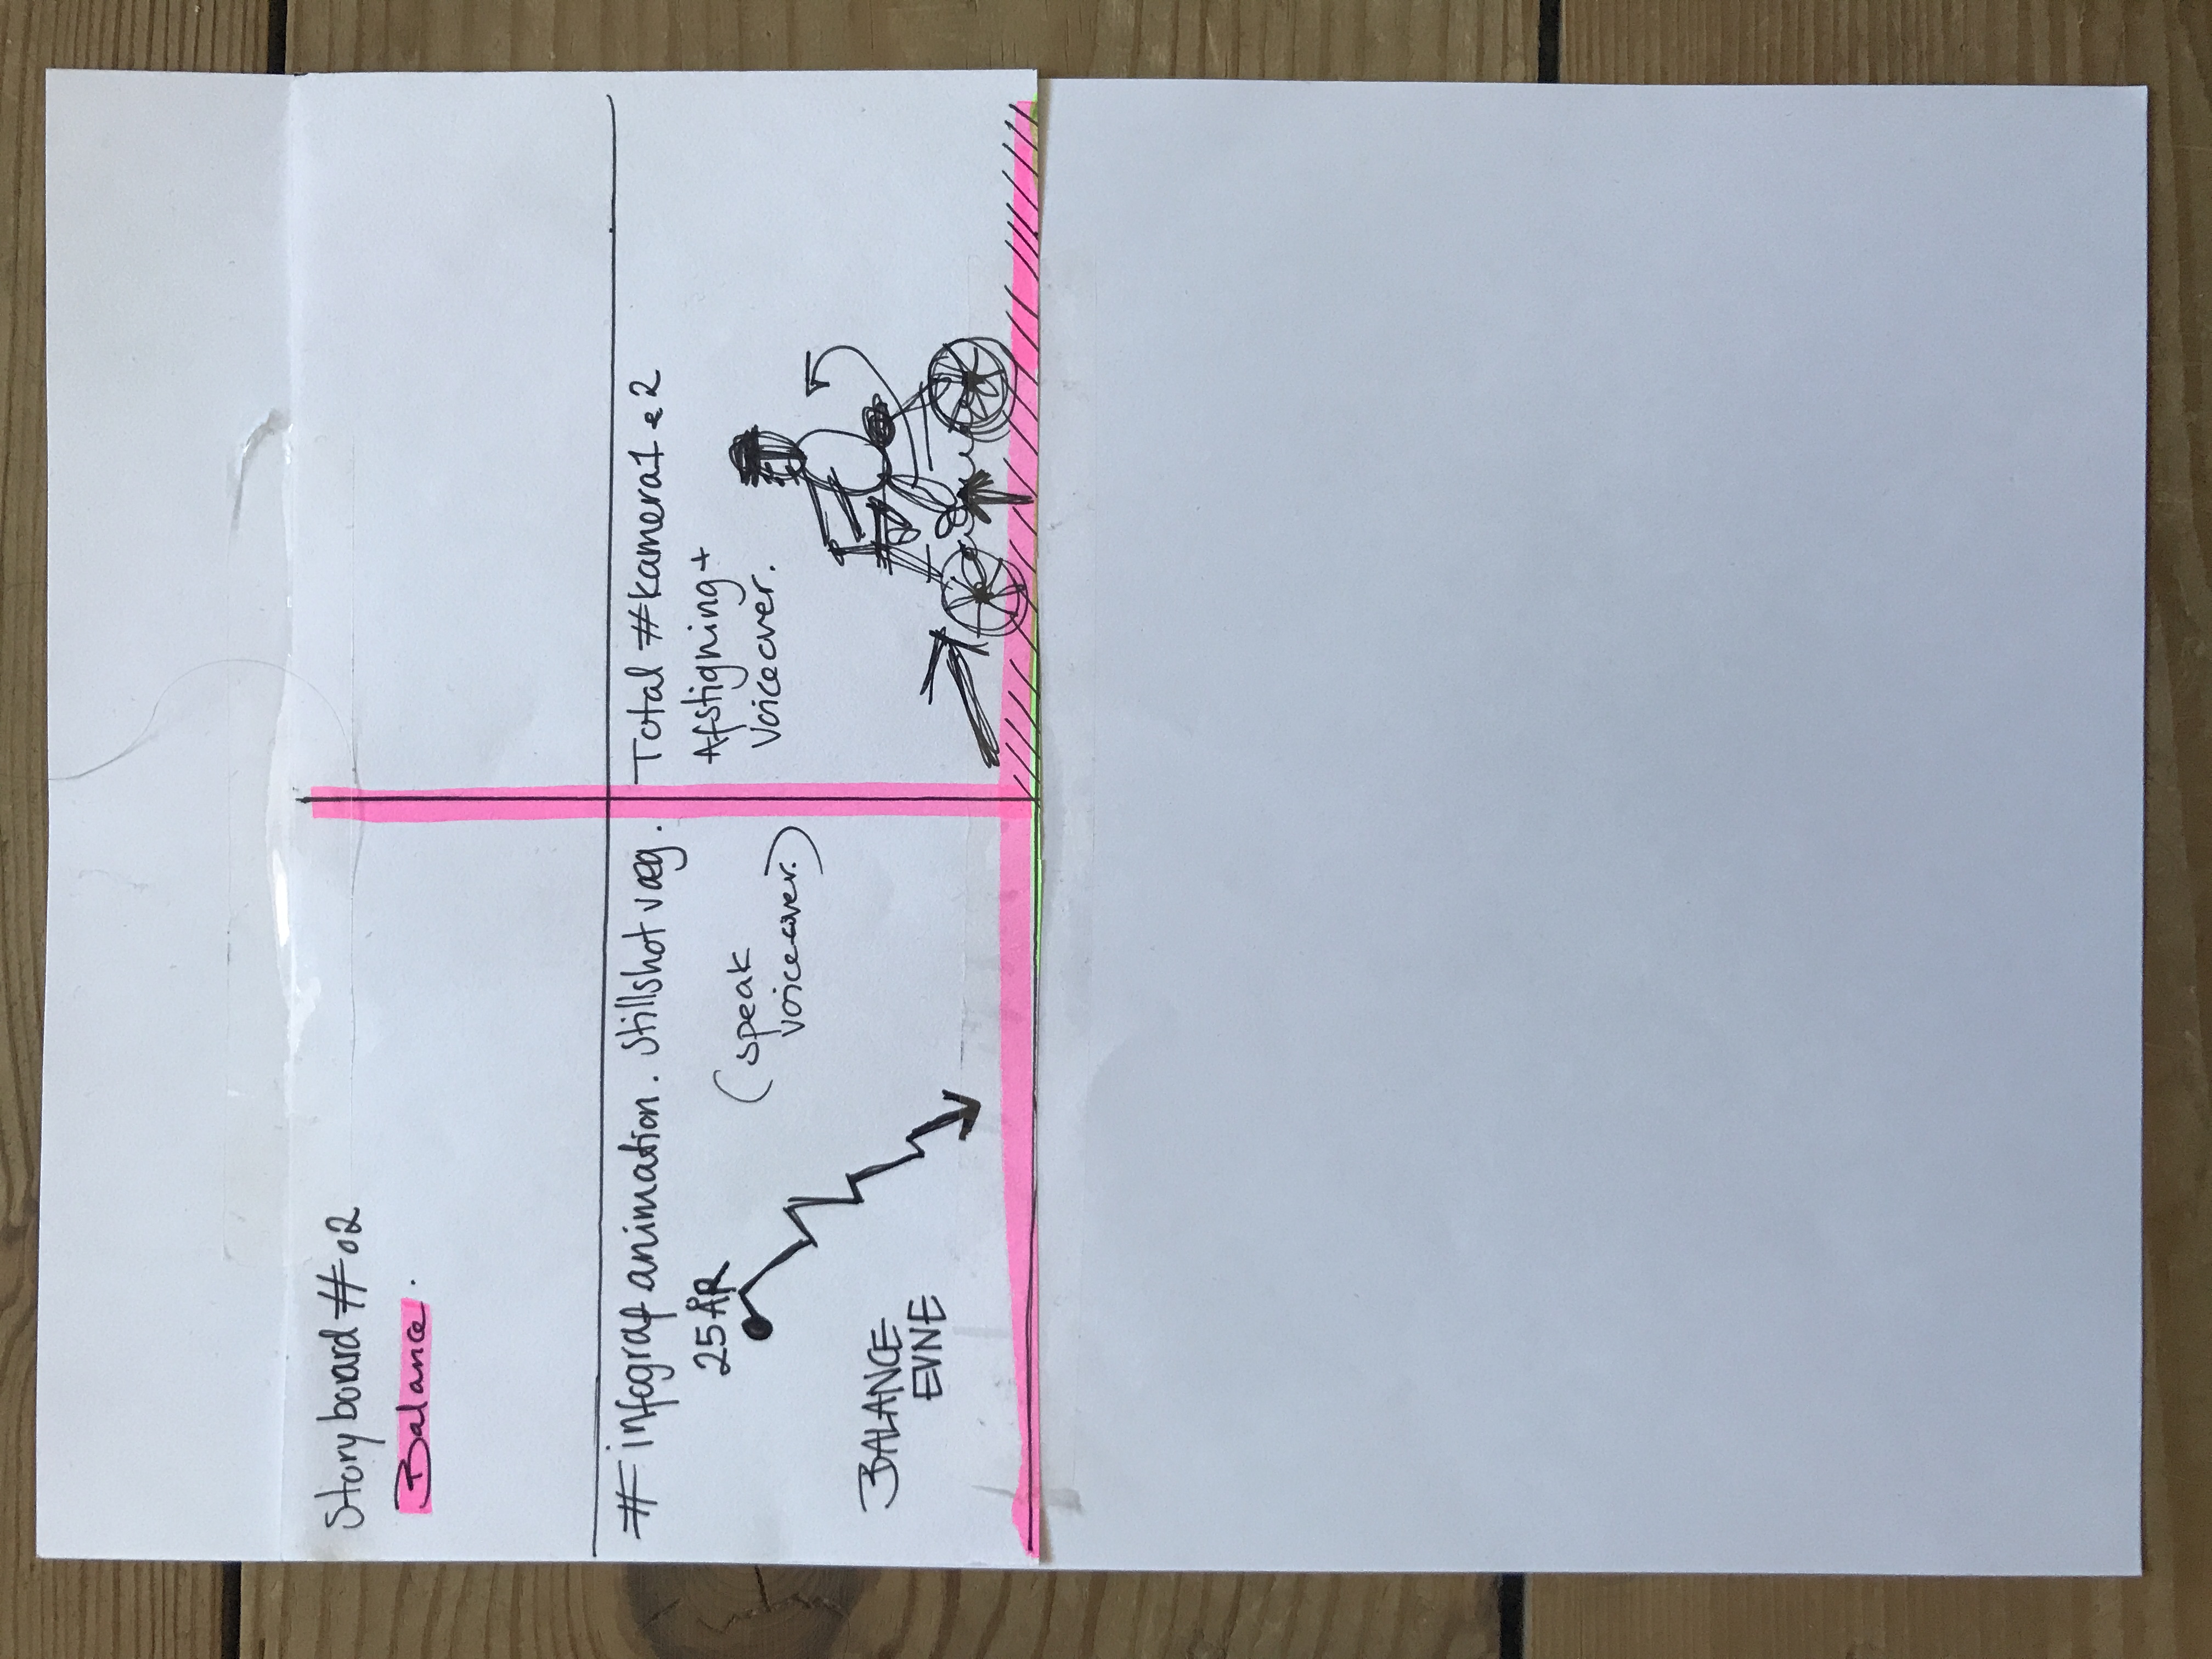 Storyboard #02
Balance.
# infograf animation. Stillshot væg.
25 ÅR
(speak
voiceover.)
BALANCE
EVNE
Total #kamera1 e 2
Afstigning +
Voiceover.